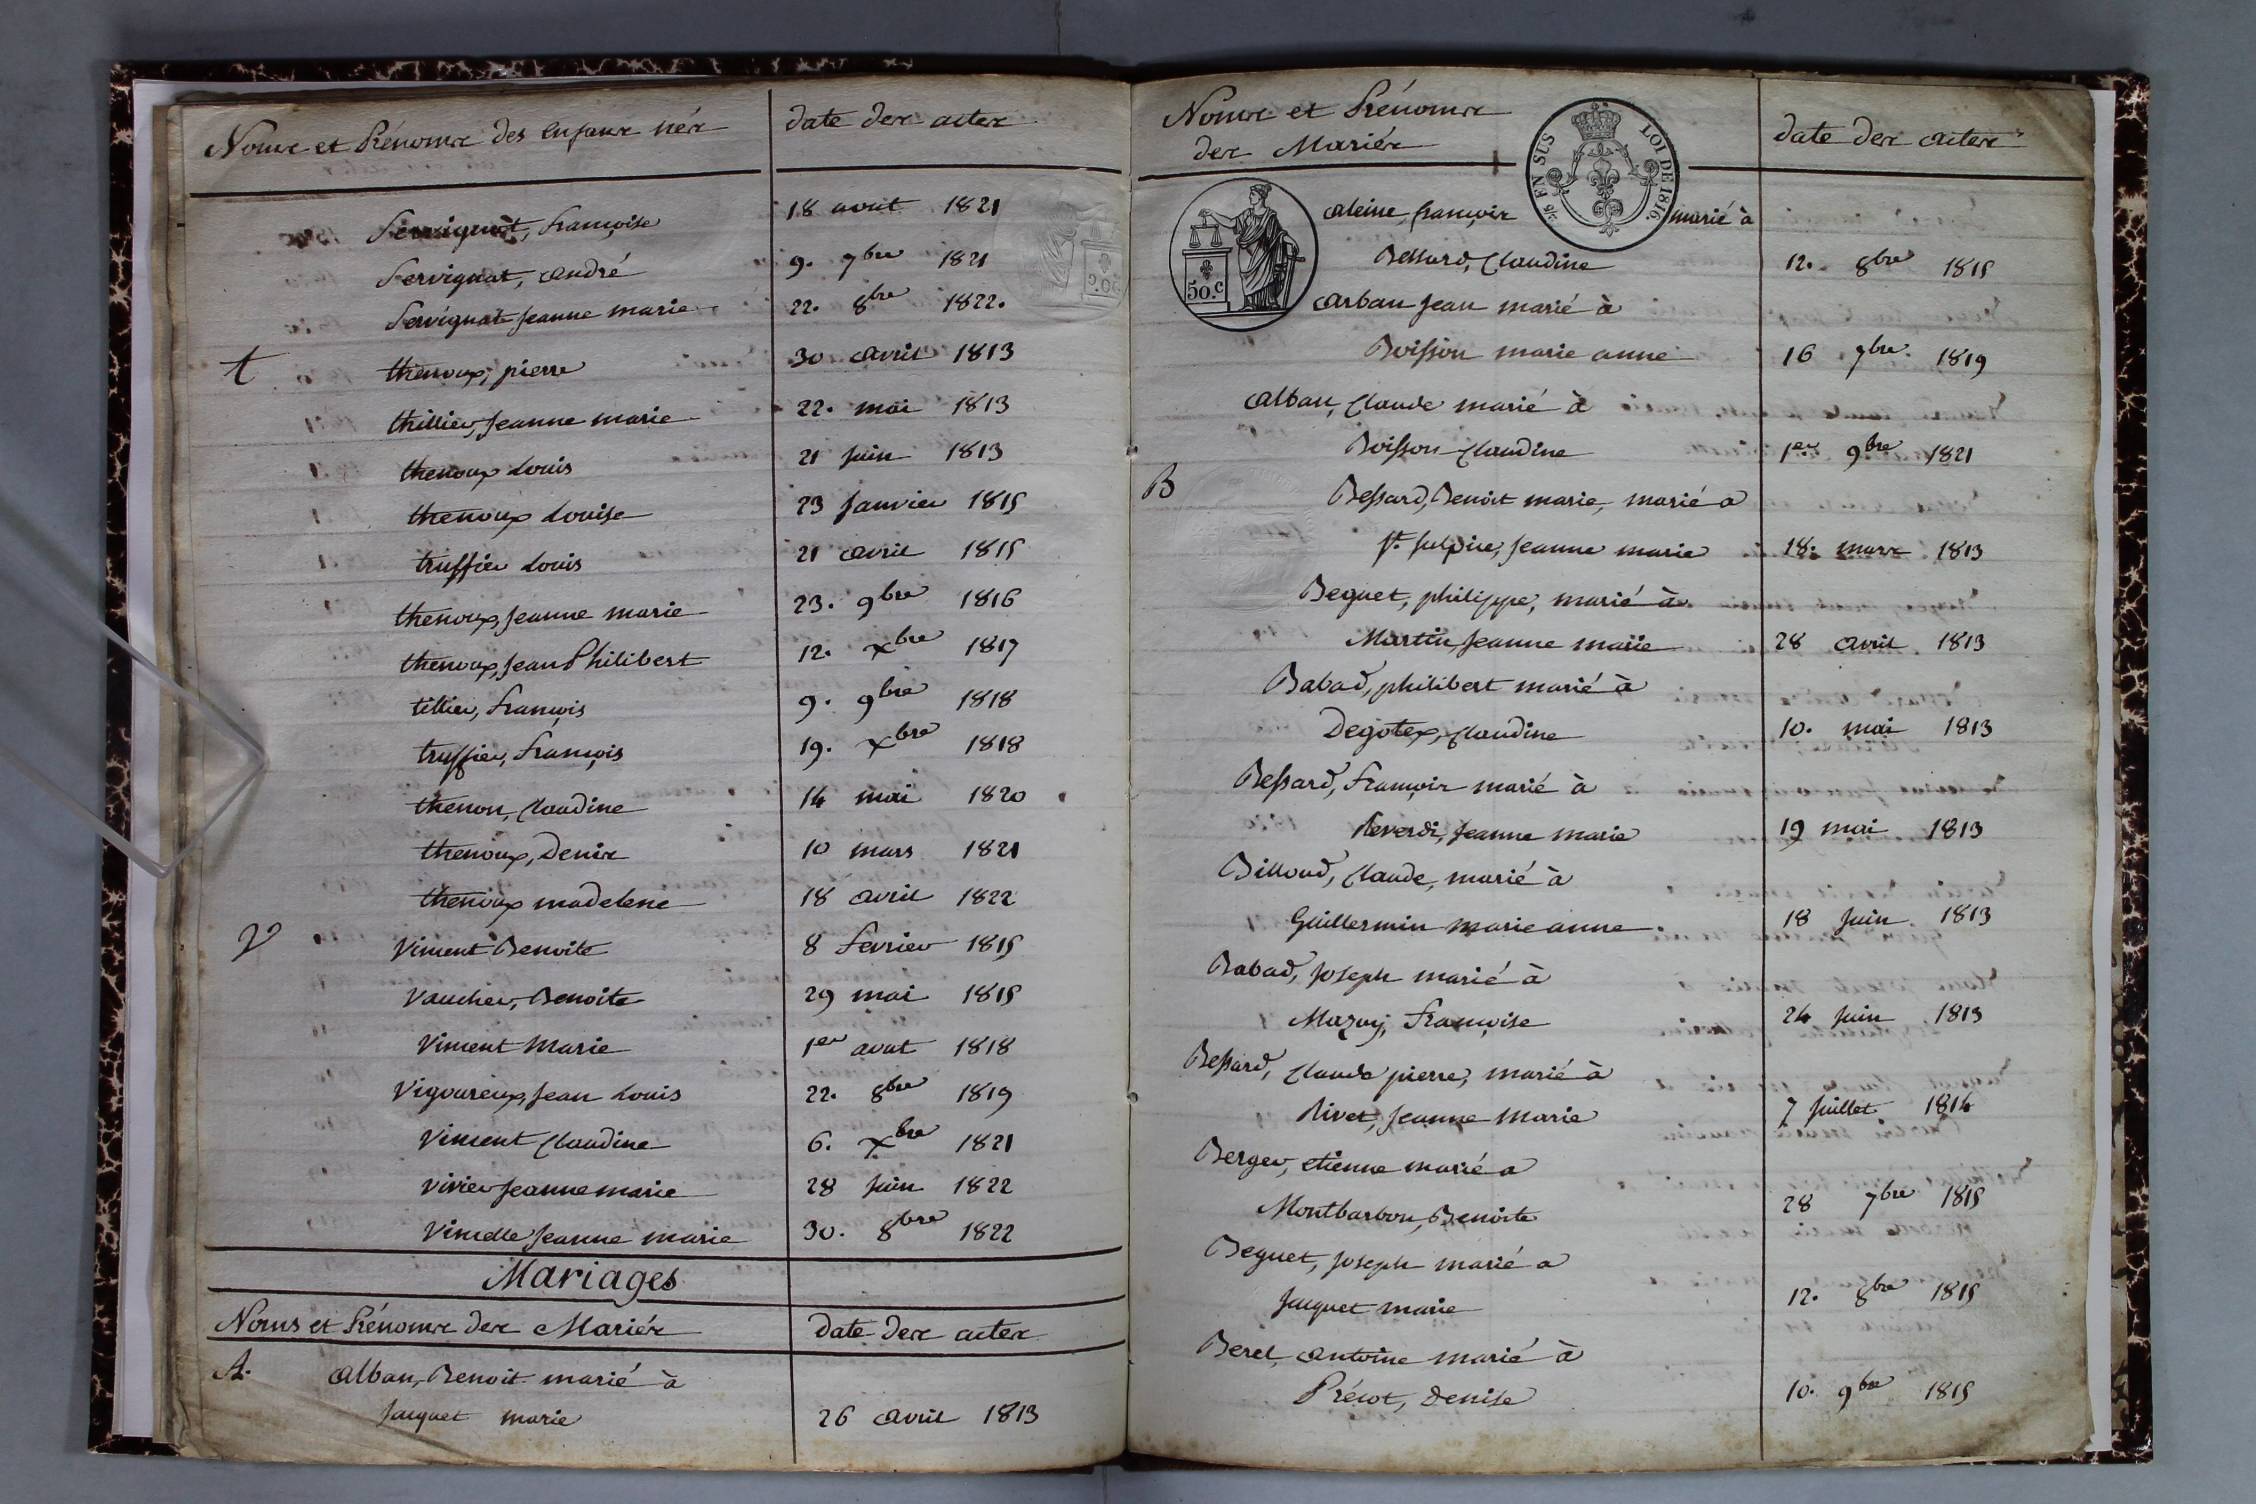 Noms et Prénoms des enfans nés
date des actes
Servignat, Françoise 18 aout 1821
Servignat, André 9. 7bre 1821
Servignat Jeanne marie 22. 8bre 1822.
t thenoux, pierre 30 avril 1813
thillier, Jeanne marie 22. mai 1813
thenoux Louis 21 Juin 1813
thenoux Louise 23 Janvier 1815
truffier Louis 21 avril 1815
thenoux, Jeanne marie 23. 9bre 1816
thenoux, Jean Philibert 12. xbre 1817
tillier, François 9. 9bre 1818
truffier, François 19. xbre 1818
thenon, Claudine 14 mai 1820
thenoux, Denis 10 mars 1821
thenoux madelene 18 avril 1822
V Vincent Benoite 8 Fevrier 1815
Vaucher, Benoite 29 mai 1815
Vincent Marie 1er aout 1818
Vigoureux, Jean Louis 22. 8bre 1819
Vincent Claudine 6. xbre 1821
Vivier Jeanne marie 28 Juin 1822
Jeanne marie 30. 8bre 1822
Mariages
Noms et Prénoms des Mariés date des actes
A. Alban, Benoit marié à
Jacquet marie 26 avril 1813
Noms et Prénoms
des Mariés
date des actes
EN SUS LOI DE 1816.
50.c
françois marié à
Bessard, Claudine 12. 8bre 1815
Arban Jean marié à
Boisson marie anne 16 7bre 1819
Alban, Claude marié à
Boisson Claudine 1er 9bre 1821
B Bessard, Benoit marie, marié a
St. Sulpice, Jeanne marie 18. mars 1813
Beguet, philippe, marié à
Martin, Jeanne marie 28 avril 1813
Babad, philibert marié à
Degotex, Claudine 10. mai 1813
Bessard, François marié à
Reverdi, Jeanne marie 19 mai 1813
Billoud, Claude, marié à
Guillermin marie anne. 18 Juin 1813
Babad, Joseph marié à
Mazuy, Françoise 24 Juin 1813
Bessard, Claude pierre, marié à
Rivet, Jeanne Marie 7 Juillet 1814
Berger, etienne marié a
Montbarbon, Benoite 28 7bre 1815
Beguet, Joseph marié a
Jacquet marie 12. 8bre 1815
Berel, antoine marié à
Prérot, Denise 10. 9bre 1815